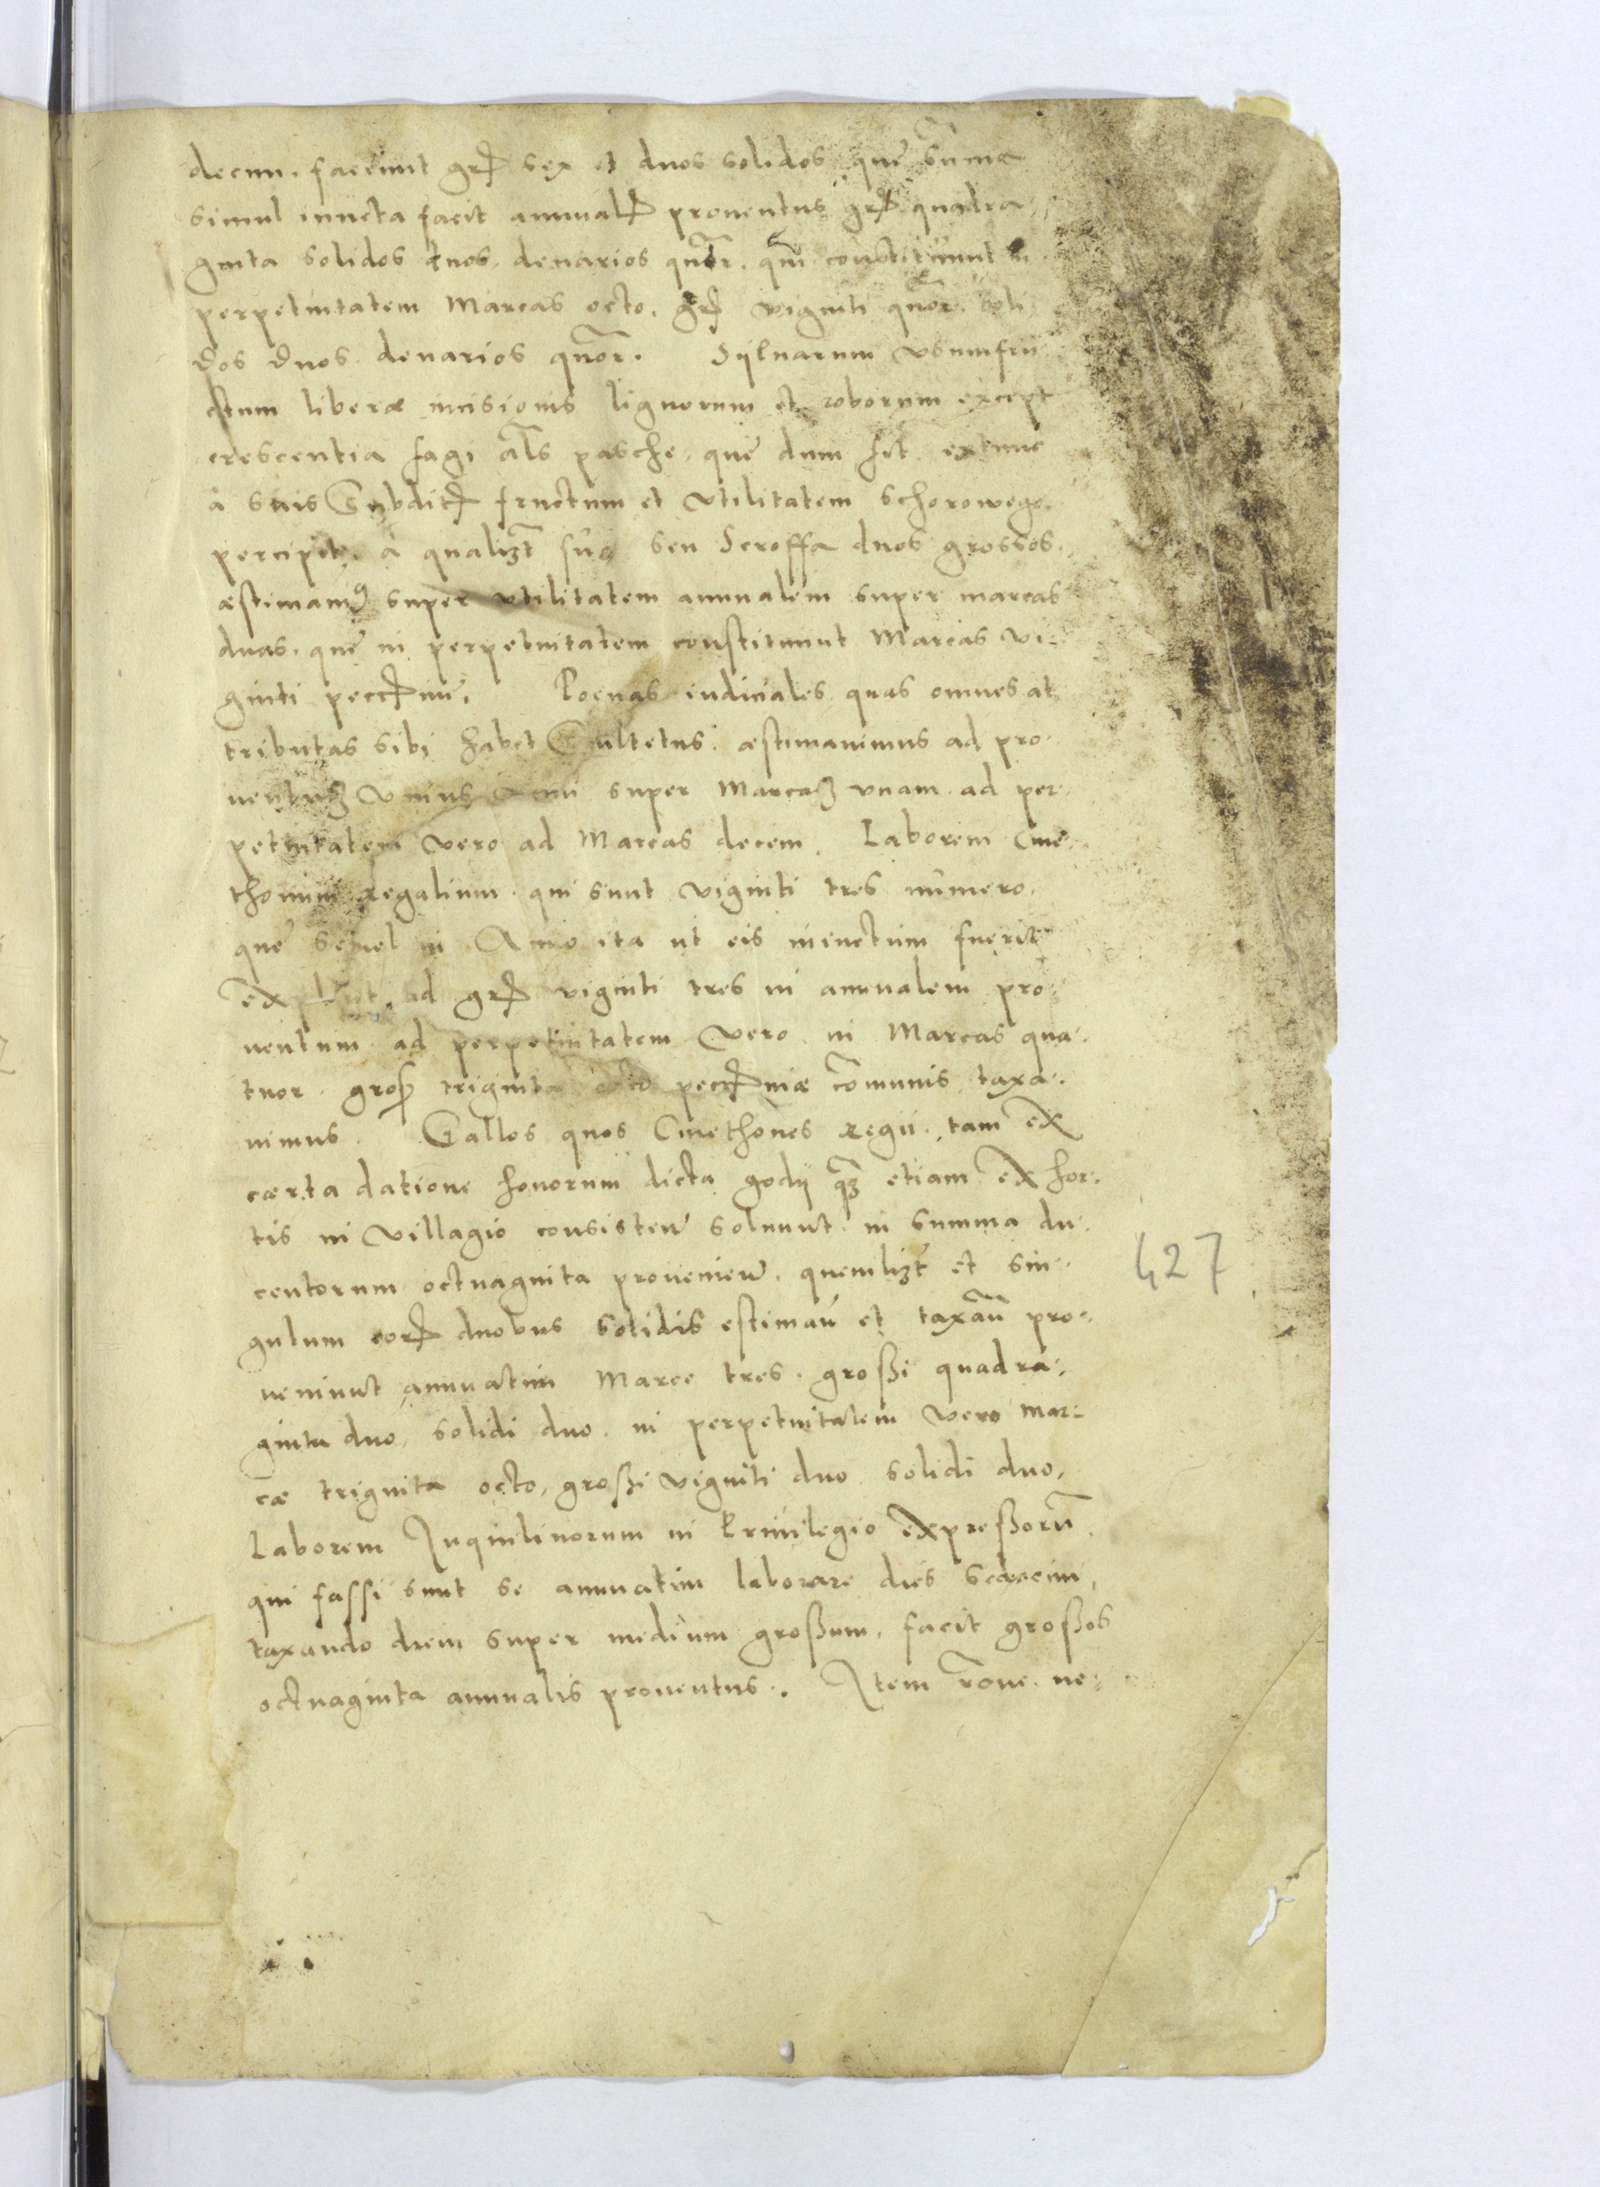 decim. facciunt grꝭ sex et duos solidos que sum̄a
simul iuncta facit annualꝭ prouentus grꝭ quadra
ginta solidos duos denarios quatr̄. que constituunt in
perpetuitatem Marcas octo. grꝭ viginti quor̄. soli
dos duos denarios quor̄. Syluarum vsumfru
ctum liberæ incisionis lignorum et roborum except
crescentia fagi al̄s pasche, que dum fit extunc
a suis Subditꝭ fructum et vtilitatem schorowego.
percipit. a qualiꝫt sue seu Scroffa duos grossos.
æstimamꝰ super vtilitatem annualem super marcas
duas. que in perpetuitatem constituunt Marcas vi-
ginti peccꝭniū. Poenas iudiciales quas omnes at
tributas sibi habet Scultetus. æstimauimus ad pro-
uentuꝫ Vnius Anni super Marcaꝫ vnam ad per-
petuitatem vero ad Marcas decem. Laborem Cme-
thonum regalium. qui sunt viginti tres numero.
que semel in Anno ita ut eis iniunctum fuerit
ad grꝭ viginti tres in annualem pro-
uentum. ad perpetuitatem vero in Marcas qua-
tuor. grosꝭ triginta octo peccꝭniæ com̄unis taxa-
uimus. Gallos quos Cmethones regii. tam ex
certa datione honorum dicta gody qꝫ etiam ex hor-
tis in villagio consisten̄ soluunt. in summa du-
centorum octuaginta prouenien̄. quemliꝫt et sin-
gulum eorꝭ duobus solidis estimaū et taxaū pro-
ueniunt annuatim Marce tres. grossi quadra-
ginta duo, solidi duo. in perpetuitatem vero mar-
cæ triginta octo, grossi viginti duo solidi duo,
Laborem Inquilinorum in Priuilegio expressorū
qui fassi sunt se annuatim laborare dies sedecim,
taxando diem super medium grossum, facit grossos
octuaginta annualis prouentus. Item r̄one ne-
427